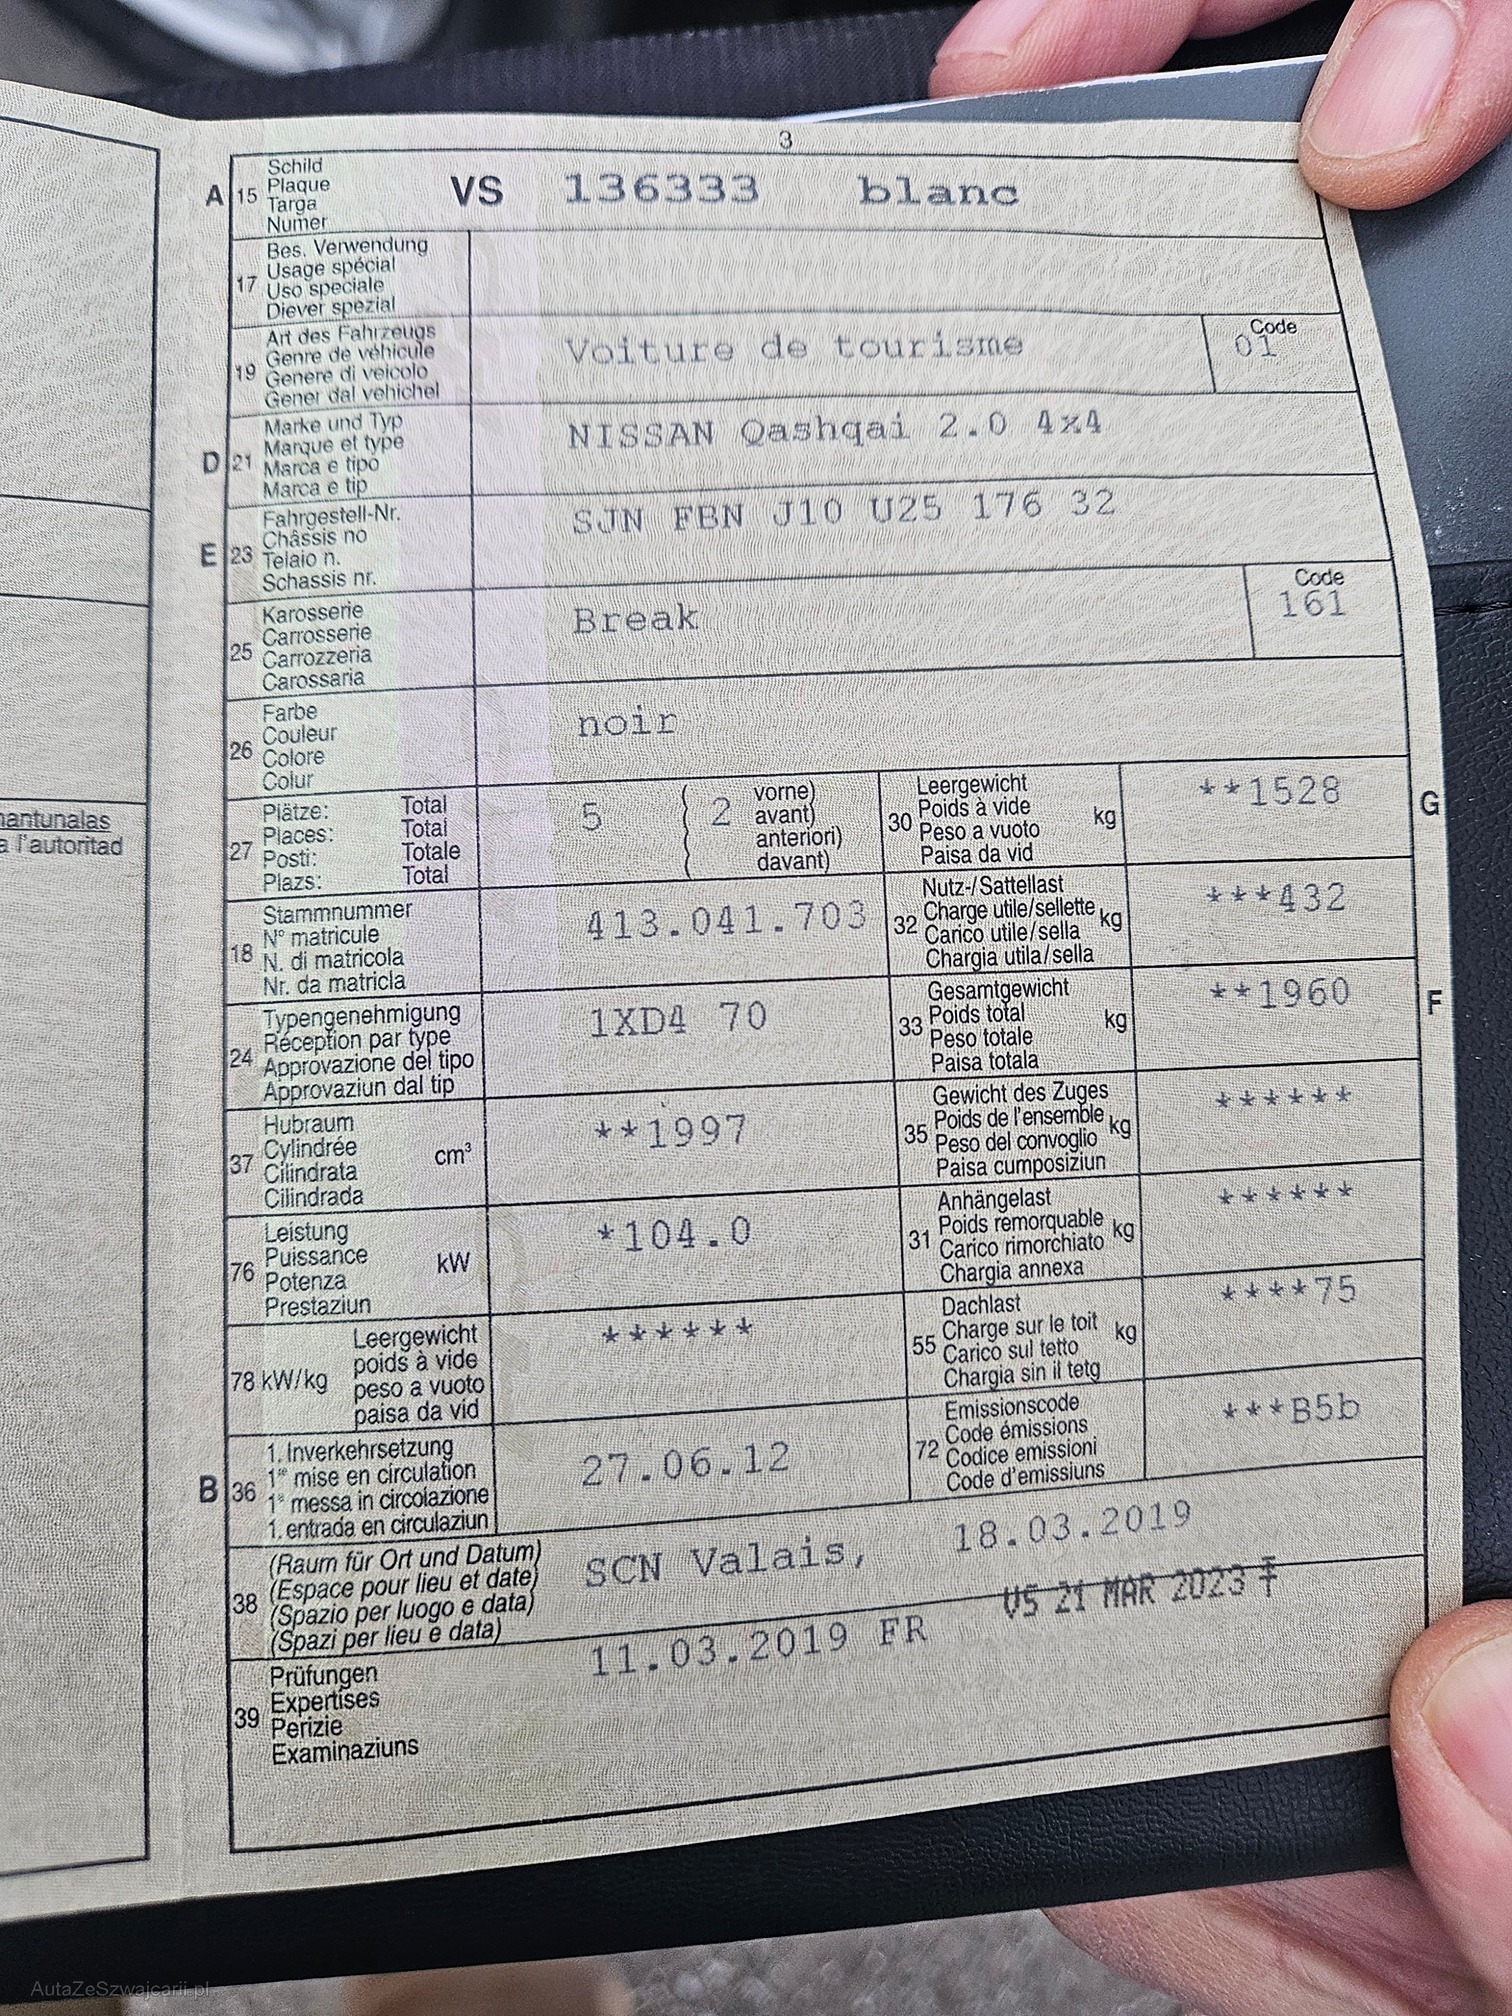 3
A 15 Schild
Plaque
Targa
Numer
VS 136333 blanc
17 Bes. Verwendung
Usage spécial
Uso speciale
Diever spezial
19 Art des Fahrzeugs
Genre de véhicule
Genere di veicolo
Gener dal vehichel
Voiture de tourisme
Code
01
D 21 Marke und Typ
Marque et type
Marca e tipo
Marca e tip
NISSAN Qashqai 2.0 4x4
E 23 Fahrgestell-Nr.
Châssis no
Telaio n.
Schassis nr.
SJN FBN J10 U25 176 32
25 Karosserie
Carrosserie
Carrozzeria
Carossaria
Break
Code
161
26 Farbe
Couleur
Colore
Colur
noir
27 Plätze: Total
Places: Total
Posti: Totale
Plazs: Total
5 ( 2 vorne)
avant)
anteriori)
davant)
30 Leergewicht
Poids à vide
Peso a vuoto
Paisa da vid
kg
**1528
G
18 Stammnummer
N° matricule
N. di matricola
Nr. da matricla
413.041.703
32 Nutz-/Sattellast
Charge utile/sellette
Carico utile/sella
Chargia utila/sella
kg
***432
24 Typengenehmigung
Réception par type
Approvazione del tipo
Approvaziun dal tip
1XD4 70
33 Gesamtgewicht
Poids total
Peso totale
Paisa totala
kg
**1960
F
37 Hubraum
Cylindrée
Cilindrata
Cilindrada
cm³
**1997
35 Gewicht des Zuges
Poids de l'ensemble
Peso del convoglio
Paisa cumposiziun
kg
******
76 Leistung
Puissance
Potenza
Prestaziun
kW
*104.0
31 Anhängelast
Poids remorquable
Carico rimorchiato
Chargia annexa
kg
******
78 kW/kg
Leergewicht
poids à vide
peso a vuoto
paisa da vid
******
55 Dachlast
Charge sur le toit
Carico sul tetto
Chargia sin il tetg
kg
****75
B 36 1. Inverkehrsetzung
1re mise en circulation
1a messa in circolazione
1. entrada en circulaziun
27.06.12
72 Emissionscode
Code émissions
Codice emissioni
Code d'emissiuns
***B5b
38 (Raum für Ort und Datum)
(Espace pour lieu et date)
(Spazio per luogo e data)
(Spazi per lieu e data)
SCN Valais, 18.03.2019
39 Prüfungen
Expertises
Perizie
Examinaziuns
11.03.2019 FR
VS 21 MAR 2023
antunalas
l'autoritad
AutaZeSzwajcarii.pl